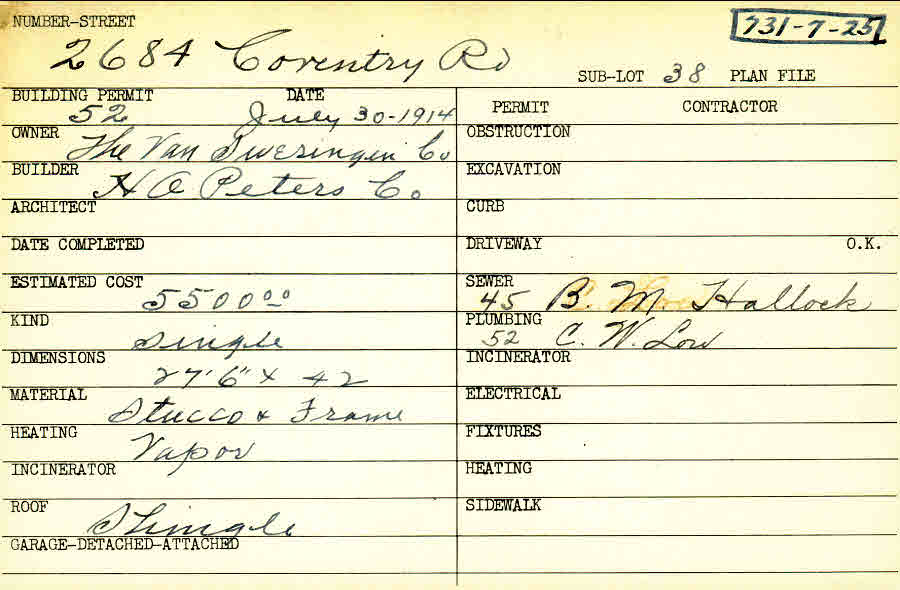 NUMBER-STREET
731-7-25
2684 Coventry Rd
SUB-LOT 38 PLAN FILE
BUILDING PERMIT DATE
52 July 30-1914
PERMIT CONTRACTOR
OWNER The Van Sweringen Co
OBSTRUCTION
BUILDER H A Peters Co
EXCAVATION
ARCHITECT
CURB
DATE COMPLETED
DRIVEWAY O.K.
ESTIMATED COST 5500 00
SEWER 45 B. M. Hallock
KIND Single
PLUMBING 52 C. W. Low
DIMENSIONS 27'6" x 42
INCINERATOR
MATERIAL Stucco & Frame
ELECTRICAL
HEATING Vapor
FIXTURES
INCINERATOR
HEATING
ROOF Shingle
SIDEWALK
GARAGE-DETACHED-ATTACHED